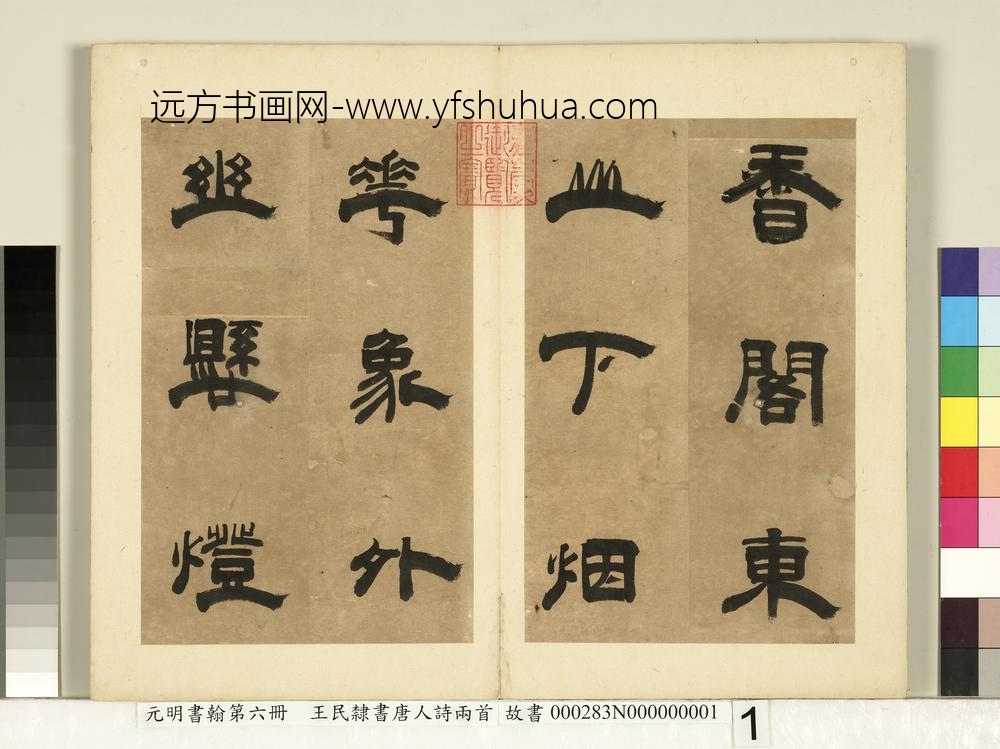 远方书画网-www.yfshuhua.com
香閣東
山下烟
華象外
幽懸燈
御覽
之寶
元明書翰第六冊 王民隸書唐人詩兩首 故書 000283N000000001
1